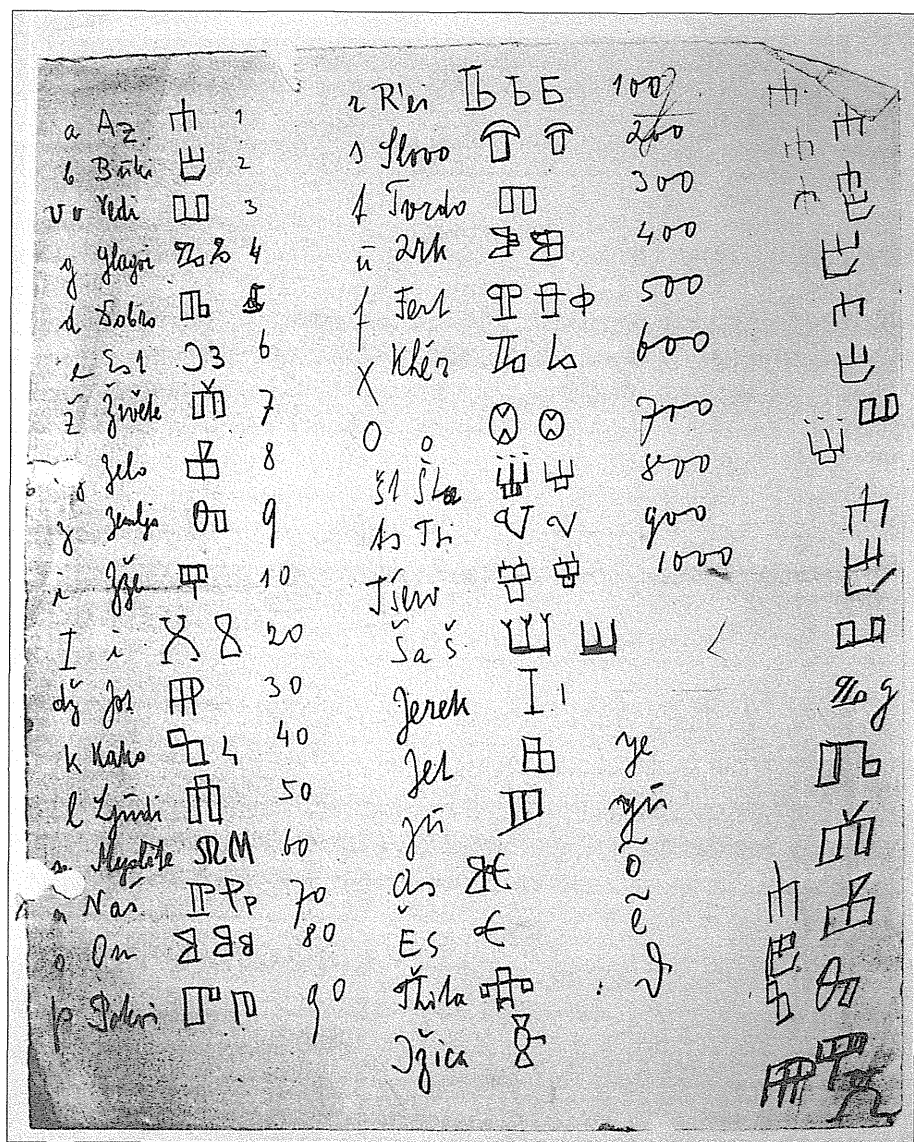 a Az Ⰰ 1
b Būki Ⰱ 2
v v Vedi Ⰲ 3
g Glagoi Ⰳ 4
d Dobro Ⰴ
e Est Ⰵ 6
ž Živěte Ⰶ 7
Zelo Ⰷ 8
z Zemljo Ⰸ 9
i Iže Ⰹ 10
I i Ⰻ 20
dž Jot Ⰼ 30
k Kako Ⰽ 40
l Ljūdi Ⰾ 50
Myslěte Ⰿ 60
n Naš Ⱀ 70
o On Ⱁ 80
p Pokoi Ⱂ 90
r R'ei Ⱃ 100
s Slovo Ⱄ 200
t Tvrdo Ⱅ 300
ū Ⱆ 400
f Fert Ⱇ Ф 500
X Khěr Ⱈ 600
O o Ⱉ 700
št Ⱋ 800
ts Tsi Ⱌ 900
Ⱍ 1000
Ša š Ⱎ
Jerek I
Jet Ⱑ ye
jū Ⱓ yū
Ⱘ õ
Ěs Ⱔ ẽ
Thita
Ižica Ⱛ
Ⰰ
Ⰱ
Ⰲ
Ⰳ g
Ⰴ
Ⰶ
Ⰷ
Ⰸ
Ⰹ